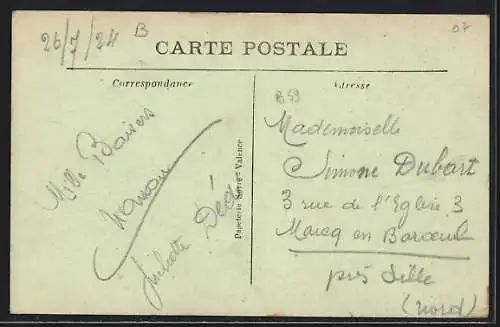 26/7/24
B
07
CARTE POSTALE
Correspondance
Adresse
B59
Mille Baisers
Juliette
Papeterie Serre - Valence
Mademoiselle
Simone Dubart
3 rue de l'Eglise 3
Marcq en Baroeul
près Lille
(Nord)